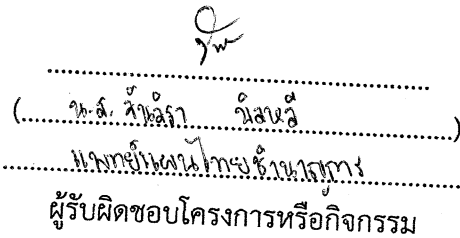 (น.ส. นิลหวี)
แพทย์แผนไทยชำนาญการ
ผู้รับผิดชอบโครงการหรือกิจกรรม